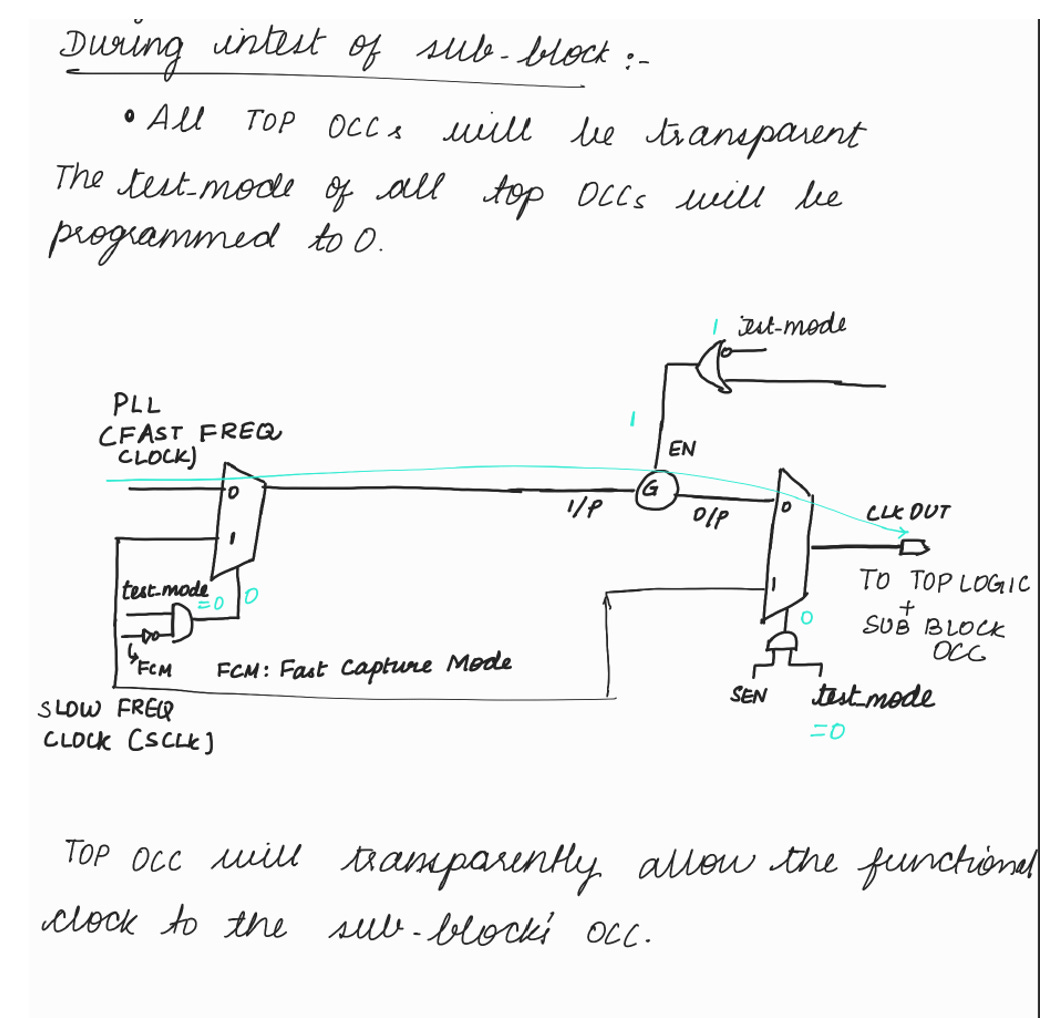 During intest of sub-block :-
• All TOP OCCs will be transparent
The test-mode of all top OCCs will be
programmed to 0.
1 test-mode
PLL
(FAST FREQ
CLOCK)
1
EN
0
G
I/P
O/P
0
CLK OUT
1
test-mode
=0
0
1
TO TOP LOGIC
+
SUB BLOCK
OCC
0
FCM
FCM: Fast Capture Mode
SEN
test-mode
=0
SLOW FREQ
CLOCK (SCLK)
TOP OCC will transparently allow the functional
clock to the sub-block's OCC.